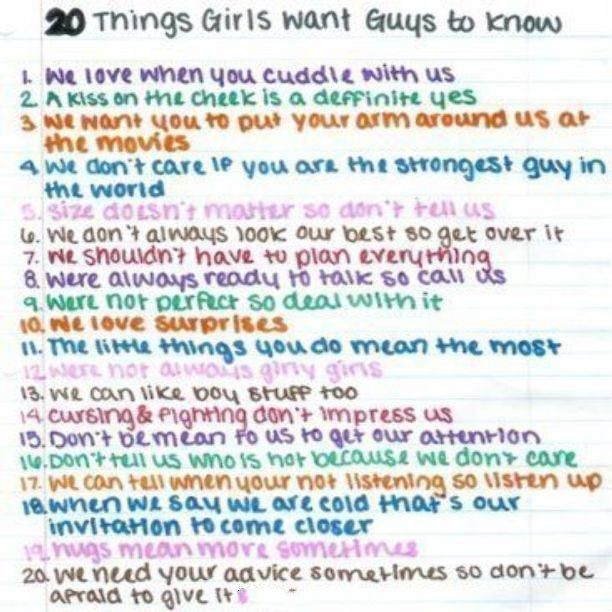 20 Things Girls Want Guys to know
1. We love when you cuddle with us
2 A kiss on the cheek is a deffinite yes
3 We want you to put your arm around us at
the movies
4 We don't care if you are the strongest guy in
the world
5. Size doesn't matter so don't tell us
6. We don't always look our best so get over it
7. We shouldn't have to plan everything
8. Were always ready to talk so call us
9. Were not perfect so deal with it
10. We love surprises
11. The little things you do mean the most
12 Were not always girly girls
13. We can like boy stuff too
14 Cursing & Fighting don't impress us
15. Don't be mean to us to get our attention
16. Don't tell us who is hot because we don't care
17. We can tell when your not listening so listen up
18. When we say we are cold that's our
invitation to come closer
19. hugs mean more sometimes
20. We need your advice sometimes so don't be
afraid to give it